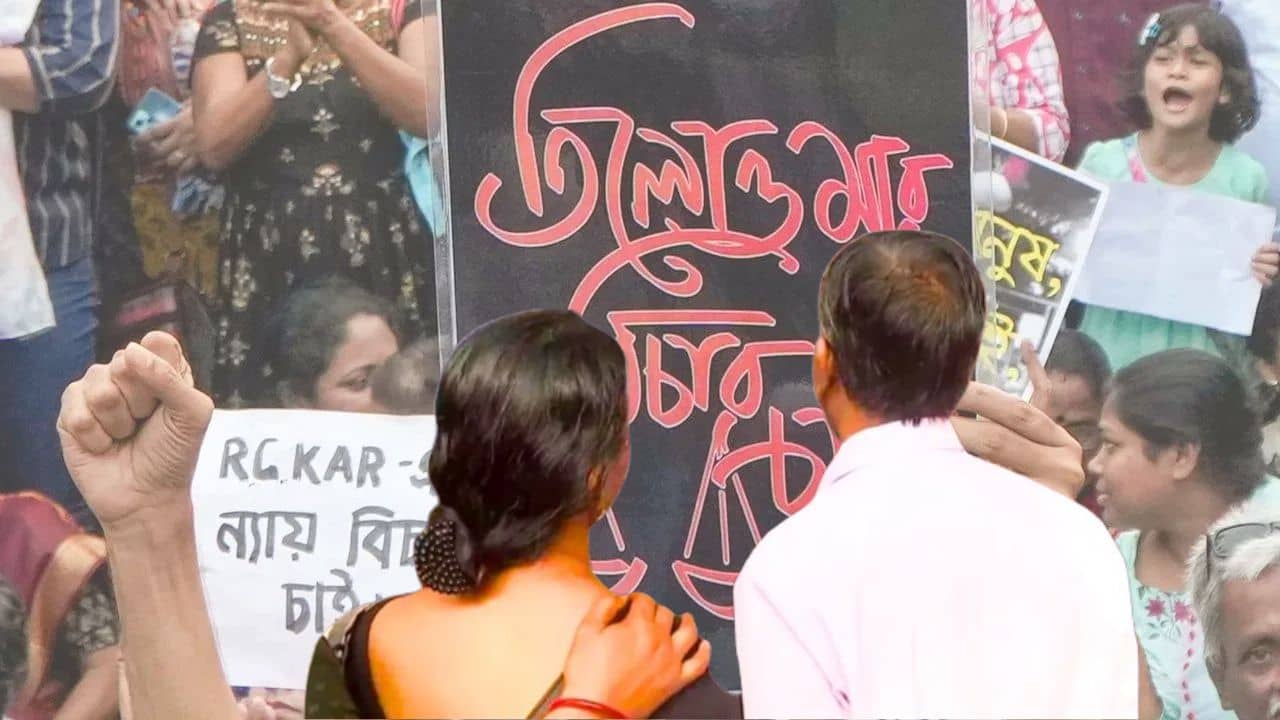 তিলোত্তমার
বিচার
RG.KAR -
ন্যায়
চাই